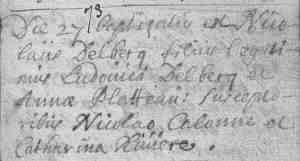 Die 27 / 8 baptizatus est Nico
laus Delberg filius legiti
mus Ludovici Delberg et
Annæ Platteau: suscepto
ribus Nicolao Calonne et
Catharina Riviere.